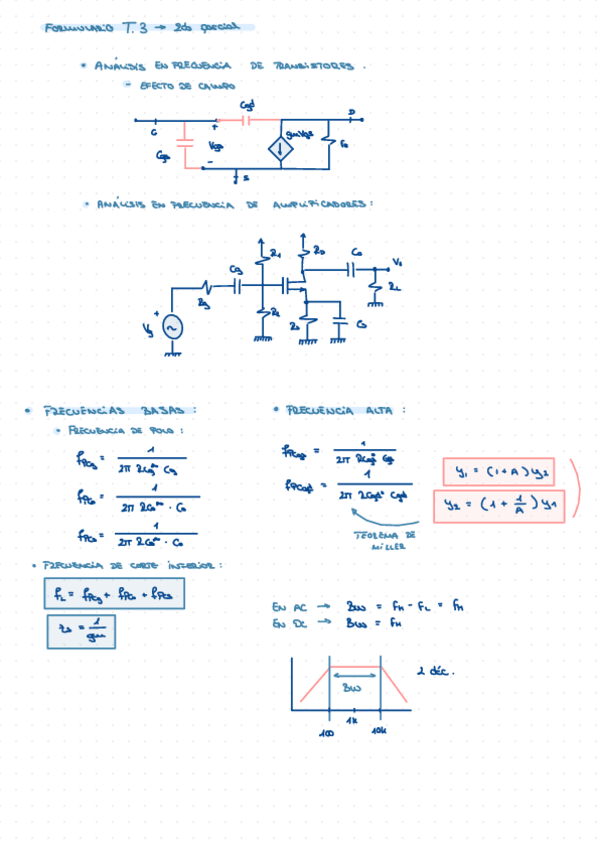 FORMULARIO T.3 → 2do parcial
• ANÁLISIS EN FRECUENCIA DE TRANSISTORES.
- EFECTO DE CAMPO
Cgd
G
+
D
Cgs
Vgs
gmVgs
ro
-
S
• ANÁLISIS EN FRECUENCIA DE AMPLIFICADORES:
R1
RD
Co
Vo
Cg
RL
Rg
R2
Rs
Cs
+
Vg
• FRECUENCIAS BAJAS:
• FRECUENCIA DE POLO:
fPCg = 1 / 2π RCg∞ Cg
fPCo = 1 / 2π RCo∞ · Co
• FRECUENCIA DE CORTE INFERIOR:
fL = fPCg + fPCo + fPCs
rs = 1 / gm
• FRECUENCIA ALTA:
TEOREMA DE
MILLER
y1 = (1+A) y2
y2 = (1 + 1/A) y1
EN AC → BW = fH - fL = fH
EN DC → BW = fH
2 déc.
BW
100
1k
10k